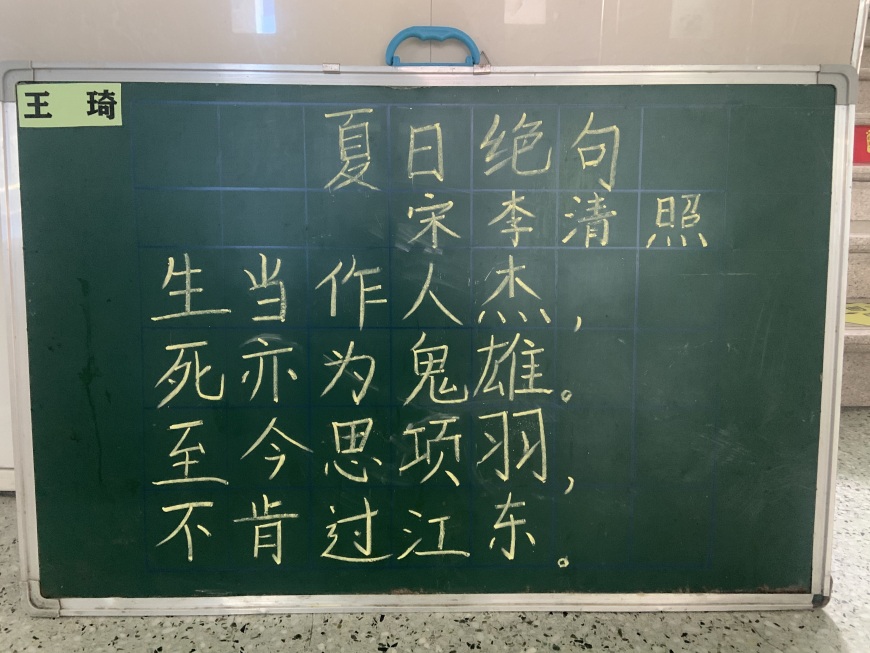 王 琦
夏日绝句
宋 李清照
生当作人杰，
死亦为鬼雄。
至今思项羽，
不肯过江东。